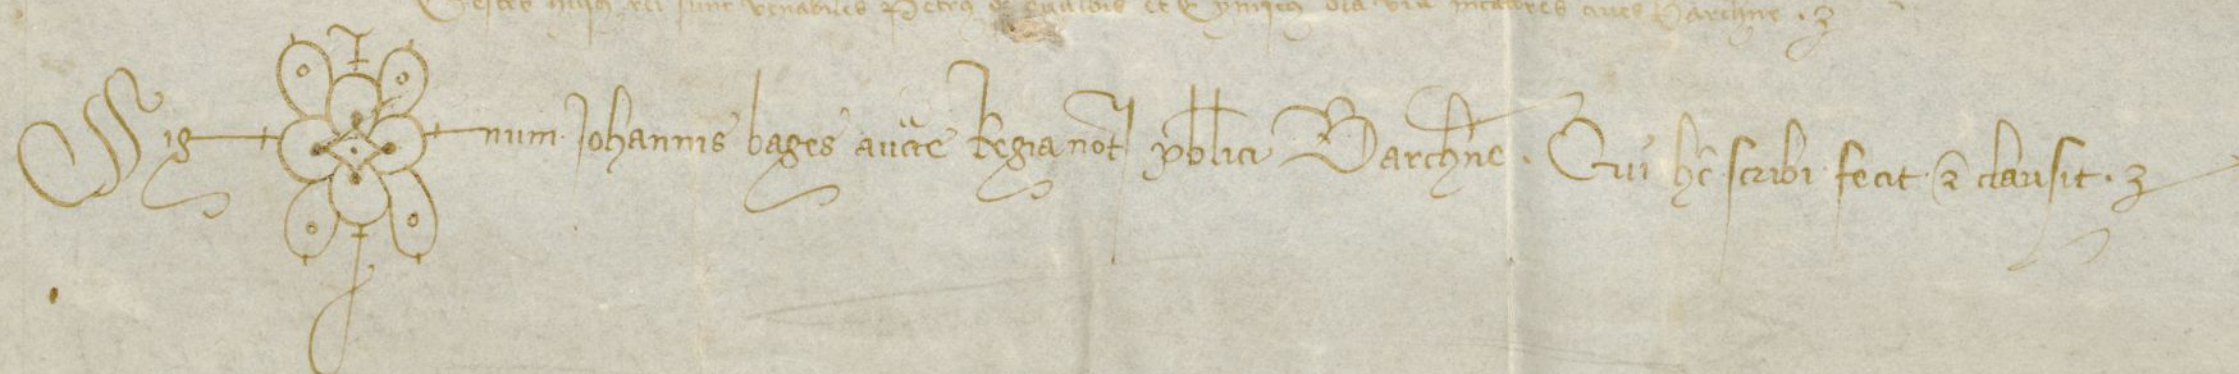 Testes huius rei sunt venabiles Petrus et mcatores cives Barchne.
Sig num Johannis bages aucte Regia not publici Barchne. Qui hec scribi fecit & clausit.